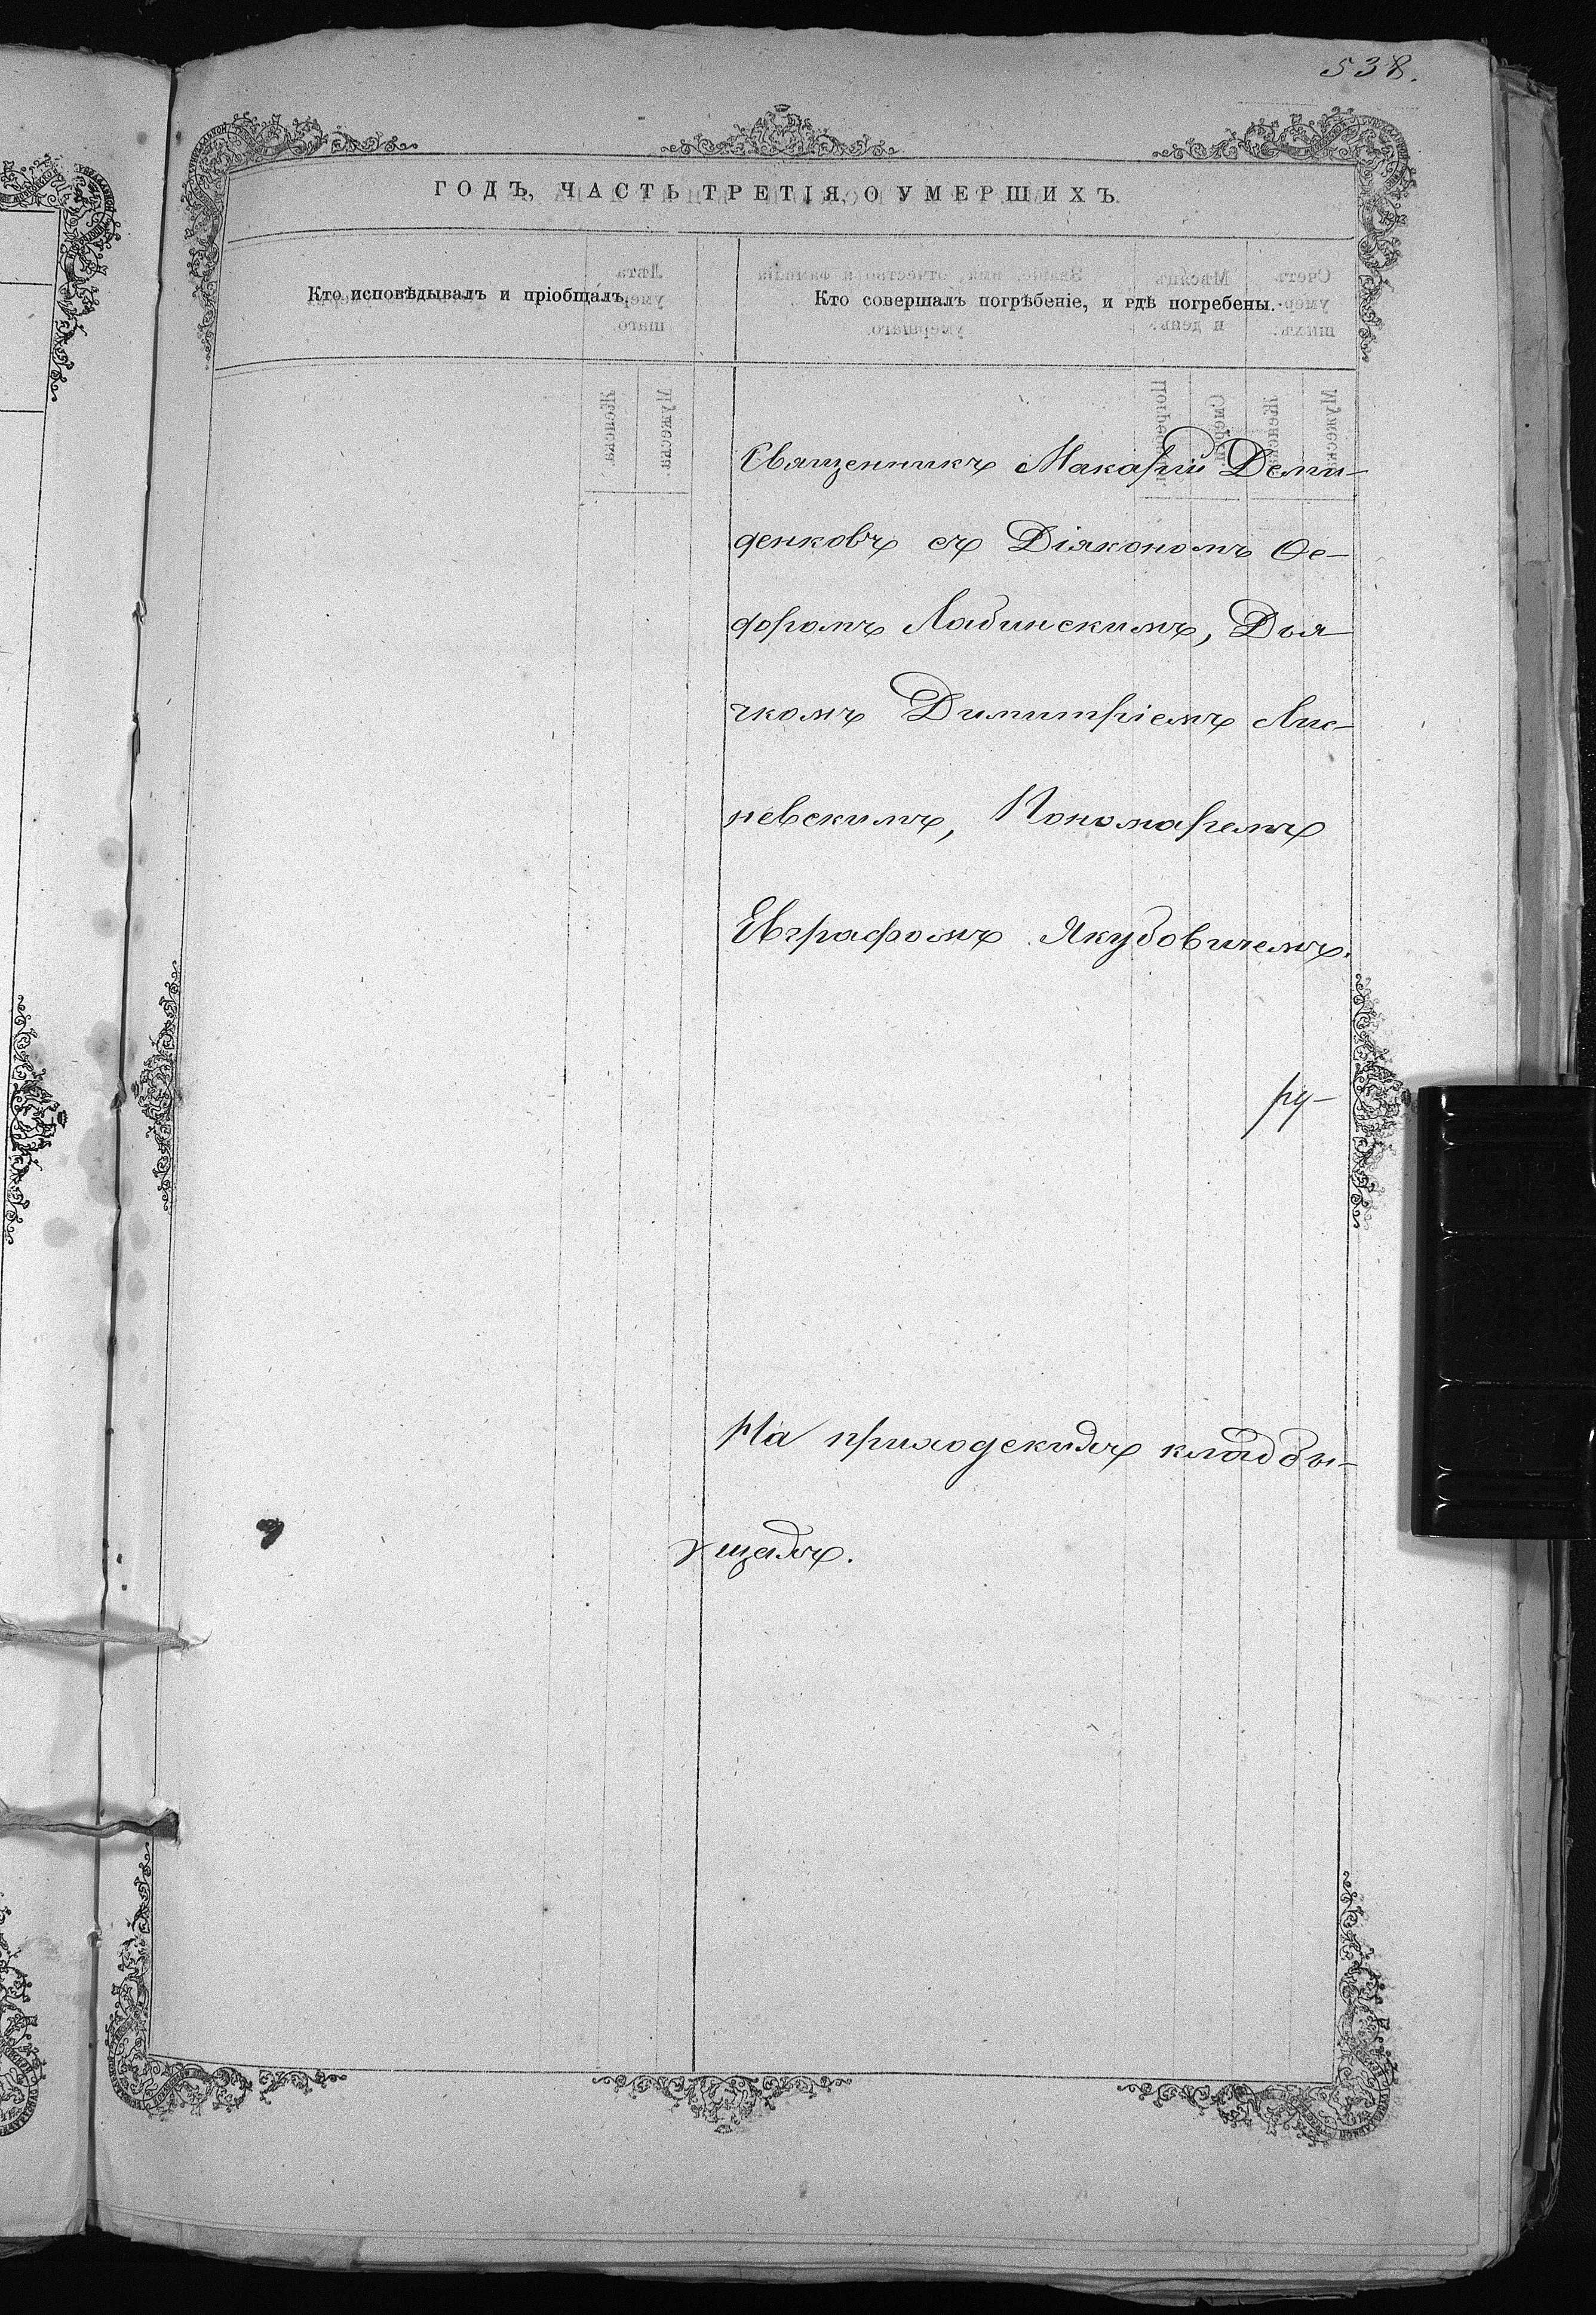 538.
ГОДЪ, ЧАСТЬ ТРЕТІЯ, О УМЕРШИХЪ.
Кто исповѣдывалъ и пріобщалъ.
Кто совершалъ погрѣбеніе, и гдѣ погребены.
Священникъ Макарій Деми-
денковъ съ Діякономъ Ѳе-
доромъ Лабинскимъ, Дья-
чкомъ Димитріемъ Лис-
невскимъ, Пономаремъ
Евграфомъ Якубовичемъ.
ру-
На приходскихъ кладби-
щахъ.